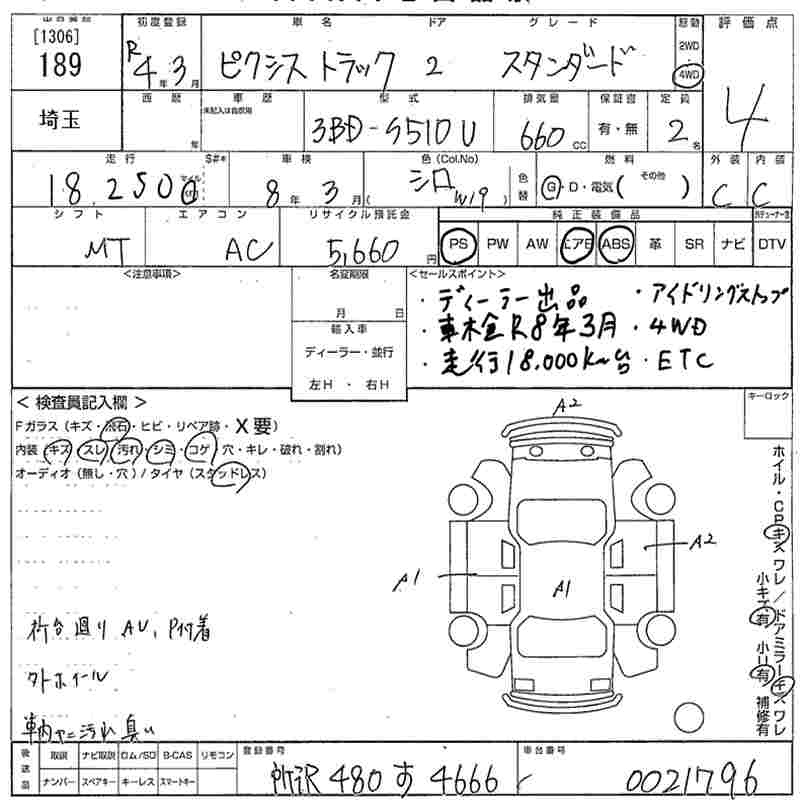 出品番号 初度登録 車名 ドア グレード 駆動 評価点
[1306]
189 R4年3月 ピクシス トラック 2 スタンダード 2WD 4WD 4
西暦 年 車歴 未記入は自家用 型式 排気量 保証書 定員
埼玉 3BD-S510U 660 CC 有・無 2名
走行 S#* 車検 色(Col.No) 色替 燃料 外装 内装
18,250 マイル 8年3月 シロ W19 G・D・電気( その他 ) C C
シフト エアコン リサイクル預託金 純正装備品
MT AC 5,660円 PS PW AW エアB ABS 革 SR ナビ DTV
<注意事項> 名変期限 <セールスポイント>
月 日 ・ディーラー出品 ・アイドリングストップ
輸入車 ・車検R8年3月 ・4WD
ディーラー・並行 ・走行18,000km台 ・ETC
左H ・ 右H
<検査員記入欄> キーロック
Fガラス(キズ・飛石・ヒビ・リペア跡・X要)
内装(キズ・スレ・汚れ・シミ・コゲ・穴・キレ・破れ・割れ)
オーディオ(無し・穴)/タイヤ(スタッドレス)
A2
A1 A1 A2
ホイル・CPキズワレ/ドアミラーキズワレ
小キズ有 小U有 補修有
荷台廻りAU、P付着
タトホイール
車内ヤニ汚れ臭い
後送品 取説 ナビ取説 ロム/SD B-CAS リモコン 登録番号 車台番号
ナンバー スペアキー キーレス スマートキー 所沢 480 す 4666 0021796